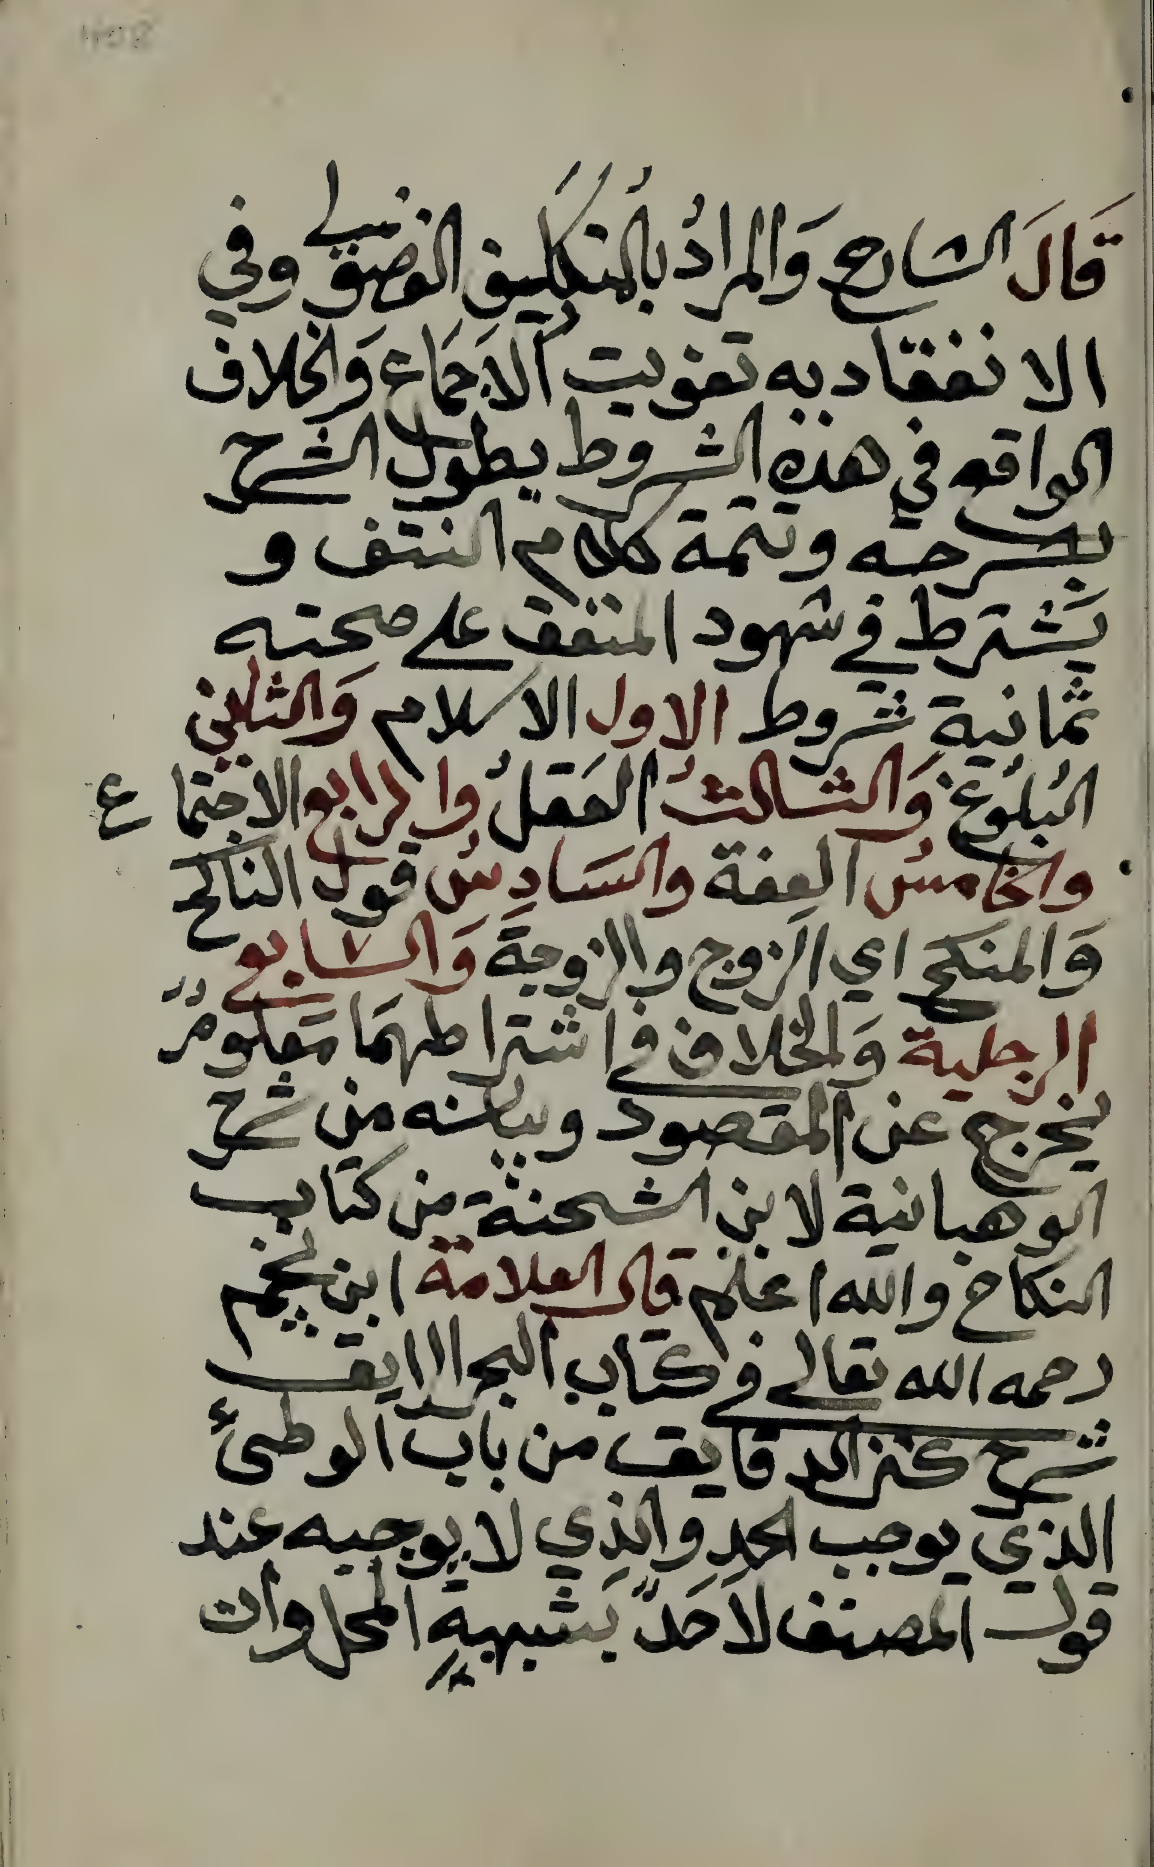 قَالَ الشارح وَالمرادُ بالتكليف وفي
الانعقاد به تفويت الاَجمَاع وَالخلاف
الواقع في هذه الشروط يطول الشرح
بشرحه وتتمة كلام النتف و
يَشترط في شهود المتفق على صحته
ثمانية شروط الاول الاسلام وَالثاني
البُلوُغ وَالثالثُ العَقلُ والرابع الاجتماع
والخامسُ العِفة والسَادِسُ قول الناكح
وَالمنكح اي الزوج والزوجة وَالسابع
الرجلية وَالخلاف في اشتراطهمَا مَعلومٌ
يخرج عن المقصود وبيانه من شرح
الوهبانية لابن الشحنة من كتاب
النكاح والله اعلم قال العلامة ابن نجيم
رحمه الله تعالى في كتاب البحر الرايق
شرح كنز الدقايق من باب الوطئ
الذي يوجب الحدِ والذي لا يوجبه عند
قول المصنف لاَحَدَّ بَشبهةِ المحل وان